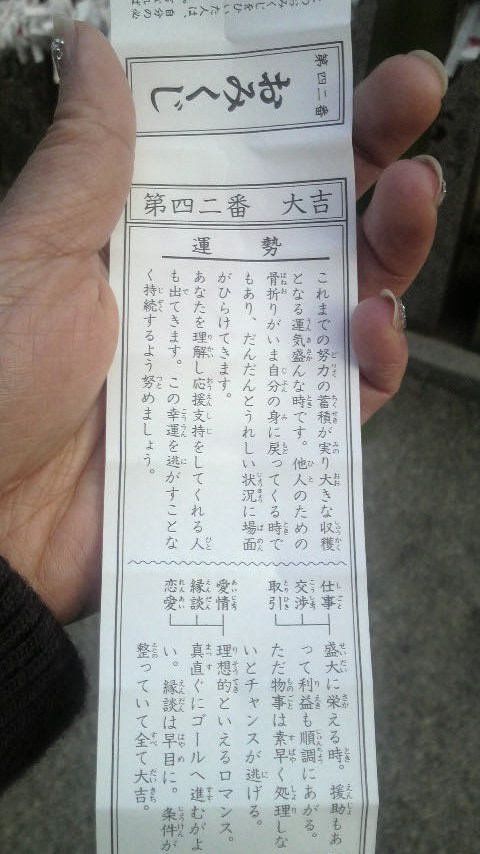 おみくじをひいた人は、自分の必
第四二番
おみくじ
第四二番 大吉
運勢
これまでの努力の蓄積が実り大きな収穫
となる運気盛んな時です。他人のための
骨折りがいま自分の身に戻ってくる時で
もあり、だんだんとうれしい状況に場面
がひらけてきます。
あなたを理解し応援支持をしてくれる人
も出てきます。この幸運を逃がすことな
く持続するよう努めましょう。
仕事
交渉
取引
盛大に栄える時。援助もあ
って利益も順調にあがる。
ただ物事は素早く処理しな
いとチャンスが逃げる。
愛情
縁談
恋愛
理想的といえるロマンス。
真直ぐにゴールへ進むがよ
い。縁談は早目に。条件が
整っていて全て大吉。